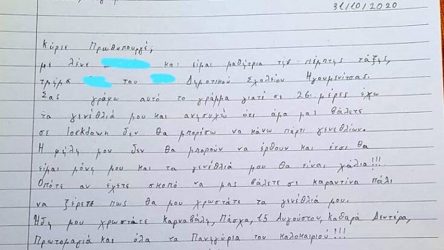 31/10/2020
Κύριε Πρωθυπουργέ,
με λένε και είμαι μαθήτρια της πέμπτης τάξης,
τμήμα του Δημοτικού Σχολείου Ηγουμενίτσας.
Σας γράφω αυτό το γράμμα γιατί σε 26 μέρες έχω
τα γενέθλιά μου και ανησυχώ ότι άμα μας βάλετε
σε lockdown δεν θα μπορέσω να κάνω πάρτι γενεθλίων.
Η μου δεν θα μπορούν να έρθουν και έτσι θα
είμαι μόνη μου και τα γενέθλιά μου θα είναι χάλια!!!
Οπότε αν έχετε σκοπό να μας βάλετε σε καραντίνα πάλι
να ξέρετε πως θα μου χρωστάτε τα γενέθλιά μου.
Ήδη μου χρωστάτε Καρναβάλι, Πάσχα, 15 Αυγούστου, Καθαρά Δευτέρα,
Πρωτομαγιά και όλα τα Πανηγύρια του καλοκαιριού!!!